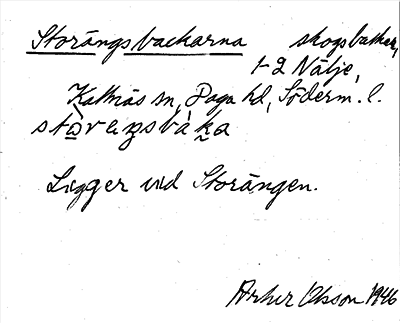 Storängsbackarna skogsbackar,
1-2 Nälje,
Kattnäs sn, Daga hd, Söderm. l.
stòrenzsbàka
Ligger vid Storängen.
Arthur Olsson 1946